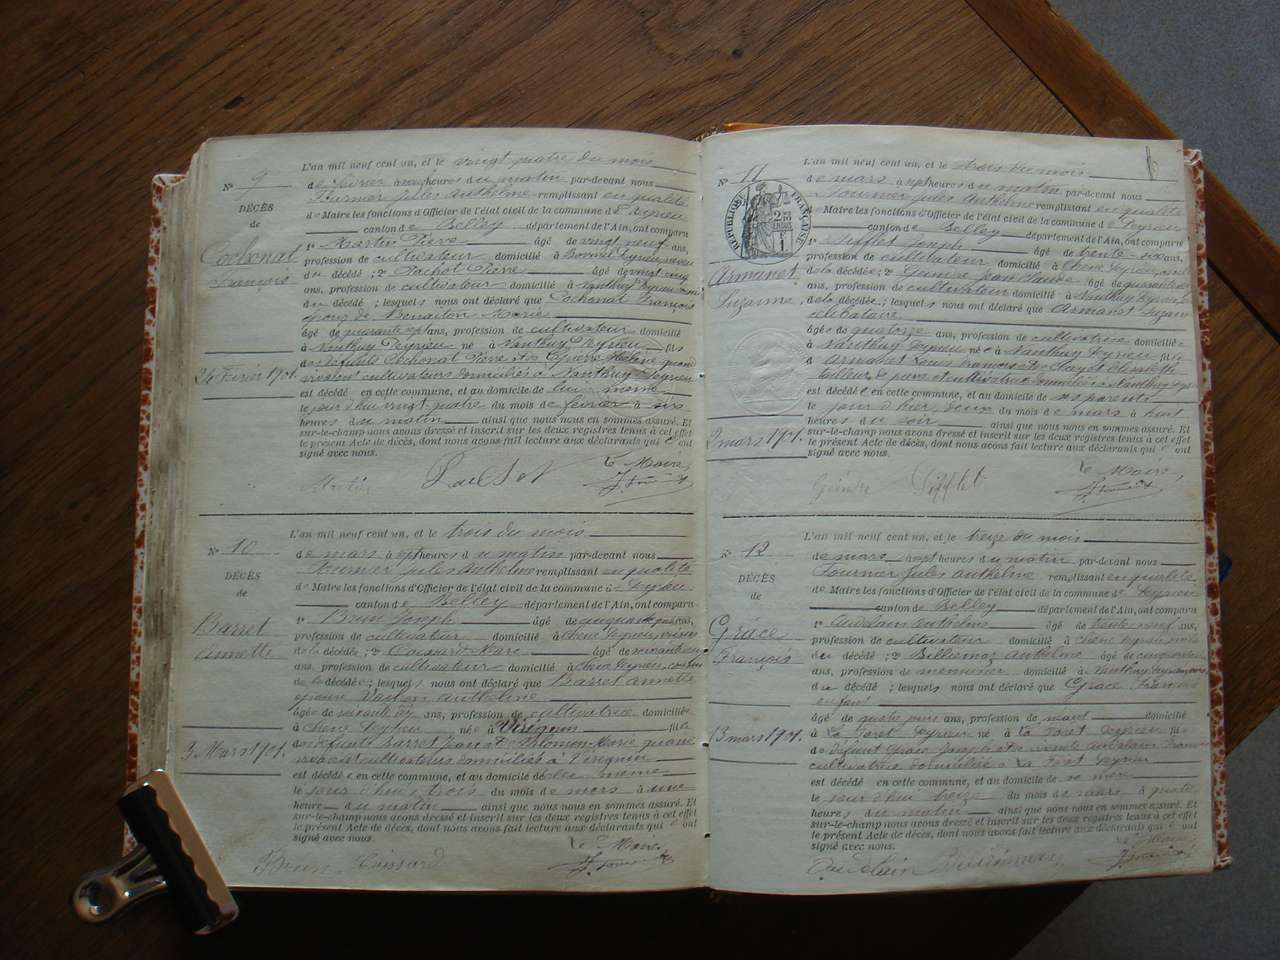 N° 9
DÉCÈS
de
Cochonat
François
24 Février 1901.
L'an mil neuf cent un, et le vingt quatre du mois
de février à heures du matin par-devant nous
Fournier Jules Anthelme remplissant en qualité
de Maire les fonctions d'Officier de l'état civil de la commune de Peyrieu
canton de Belley département de l'Ain, ont comparu
1° Martin Pierre âgé de vingt neuf ans,
profession de cultivateur domicilié à Peyrieu
du décédé ; 2° Pachot Pierre âgé de vingt cinq
ans, profession de cultivateur domicilié à Nanthuy Peyrieu
du décédé ; lesquels nous ont déclaré que Cochonat François
époux de Benaiton Marie
âgé de quarante ans, profession de cultivateur domicilié
à Nanthuy Peyrieu né à Nanthuy Peyrieu fils
de défunts Cochonat Pierre et de Hélène quand
vivaient cultivateurs domiciliés à Nanthuy Peyrieu
est décédé en cette commune, et au domicile de lui même
le jour d'hui vingt quatre du mois de février à six
heures du matin ainsi que nous nous en sommes assuré. Et
sur-le-champ nous avons dressé et inscrit sur les deux registres tenus à cet effet
le présent Acte de décès, dont nous avons fait lecture aux déclarants qui ont
signé avec nous.
Le Maire
Martin Pachot J. Fournier
N° 10
DÉCÈS
de
Barret
Annette
3 Mars 1901.
L'an mil neuf cent un, et le trois du mois
de mars à sept heures du matin par-devant nous
Fournier Jules Anthelme remplissant en qualité
de Maire les fonctions d'Officier de l'état civil de la commune de Peyrieu
canton de Belley département de l'Ain, ont comparu
1° Brun Joseph âgé de cinquante ans,
profession de cultivateur domicilié à Chêne Peyrieu, voisin
de la décédée ; 2° Marc âgé de soixante
ans, profession de cultivateur domicilié à Chêne Peyrieu, cousin
de la décédée ; lesquels nous ont déclaré que Barret Annette
épouse Anthelme
âgée de soixante dix ans, profession de cultivatrice domiciliée
à Chêne Peyrieu née à Virignin fille
de défunts Barret et Marie quand
vivaient cultivateurs domiciliés à Virignin
est décédée en cette commune, et au domicile d'elle même
le jour d'hui trois du mois de mars à une
heure du matin ainsi que nous nous en sommes assuré. Et
sur-le-champ nous avons dressé et inscrit sur les deux registres tenus à cet effet
le présent Acte de décès, dont nous avons fait lecture aux déclarants qui ont
signé avec nous.
Le Maire
Brun J. Fournier
N° 11
RÉPUBLIQUE FRANÇAISE
DÉCÈS
Armanet
Suzanne
2 mars 1901.
L'an mil neuf cent un, et le trois du mois
de mars à sept heures du matin par-devant nous
Fournier Jules Anthelme remplissant en qualité
de Maire les fonctions d'Officier de l'état civil de la commune de Peyrieu
canton de Belley département de l'Ain, ont comparu
1° Sifflet Joseph âgé de trente six ans,
profession de cultivateur domicilié à Chêne Peyrieu,
de la décédée ; 2° Jean Claude âgé de quarante
ans, profession de cultivateur domicilié à Nanthuy Peyrieu
de la décédée ; lesquels nous ont déclaré que Armanet Suzanne
célibataire
âgée de quatorze ans, profession de cultivatrice domiciliée
à Nanthuy Peyrieu née à Nanthuy Peyrieu fille
de Armanet Louis François et de Elisabeth
tailleur de pierre et cultivatrice domiciliés à Nanthuy Peyrieu
est décédée en cette commune, et au domicile de ses parents
le jour d'hier deux du mois de mars à huit
heures du soir ainsi que nous nous en sommes assuré. Et
sur-le-champ nous avons dressé et inscrit sur les deux registres tenus à cet effet
le présent Acte de décès, dont nous avons fait lecture aux déclarants qui ont
signé avec nous.
Le Maire
Sifflet J. Fournier
N° 12
DÉCÈS
de
Grâce
François
13 mars 1901.
L'an mil neuf cent un, et le treize du mois
de mars à sept heures du matin par-devant nous
Fournier Jules Anthelme remplissant en qualité
de Maire les fonctions d'Officier de l'état civil de la commune de Peyrieu
canton de Belley département de l'Ain, ont comparu
1° Audelain Anthelme âgé de trente neuf ans,
profession de cultivateur domicilié à Chêne Peyrieu,
du décédé ; 2° Billiemaz Anthelme âgé de cinquante
ans, profession de menuisier domicilié à Nanthuy Peyrieu
du décédé ; lesquels nous ont déclaré que Grâce François
enfant
âgé de quatre jours ans, profession de néant domicilié
à La Forêt Peyrieu né à La Forêt Peyrieu fils
de défunt Grâce Joseph et de Audelain
cultivatrice domiciliée à La Forêt Peyrieu
est décédé en cette commune, et au domicile de sa mère
le jour d'hui treize du mois de mars à quatre
heures du matin ainsi que nous nous en sommes assuré. Et
sur-le-champ nous avons dressé et inscrit sur les deux registres tenus à cet effet
le présent Acte de décès, dont nous avons fait lecture aux déclarants qui ont
signé avec nous.
Le Maire
Audelain Billiemaz J. Fournier